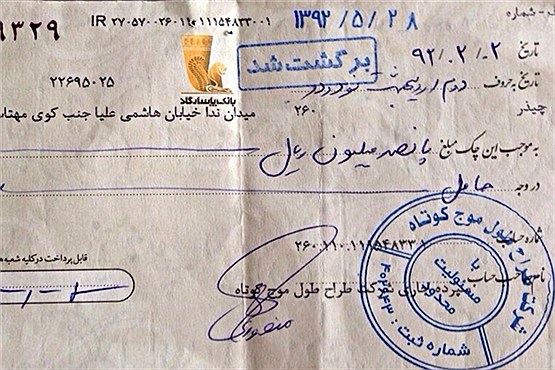 شماره
۱۳۹۲/۵/۲۸
IR ۲۷۰۵۷۰۰۲۶۰۱۱۱۱۵۴۸۳۳۰۰۱
۹۳۲۹
تاریخ ۹۲/۰۲/۰۲
برگشت شد
بانک پاسارگاد
۲۲۶۹۵۰۲۵
تاریخ به حروف دوم اردیبهشت نود و دو
چیذر
۲۶۰
میدان ندا خیابان هاشمی علیا جنب کوی مهتاب
به موجب این چک مبلغ پانصد میلیون ریال
در وجه حامل
شماره حساب ۲۶۰.۱۱۰.۱۱۱۵۴۸۳۳.۱
قابل پرداخت در کلیه شعبه ها
نام صاحب حساب سپرده جاری شرکت طراح طول موج کوتاه
شرکت طراح طول موج کوتاه
با مسئولیت محدود
شماره ثبت: